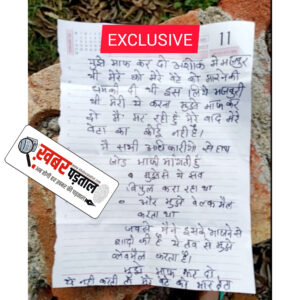 EXCLUSIVE
11
मुझे माफ कर दो अंशिक मैं मजबूर
थी मेरे को मेरे बेटे को मारने की
धमकी दी थी इस लिये मजबूरी
थी मेरी ये करना मुझे माफ कर
दो मैं मर रही हूं मेरे बाद मेरे
बेटा का कोई नहीं है।
मैं सभी अधिकारीगो से हाथ
जोड़ माफी मांगती हूं
मुझसे ये सब
विपुल करा रहा था
और मुझे बेलकमैल
करता था
जबसे मैंने इसके भाई से
शादी की है ये तब से मुझे
बेलमैल करता है।
मुझे माफ कर दो
ये नहीं करती तो मेरे बेटे को मार देता
खबर
पड़ताल